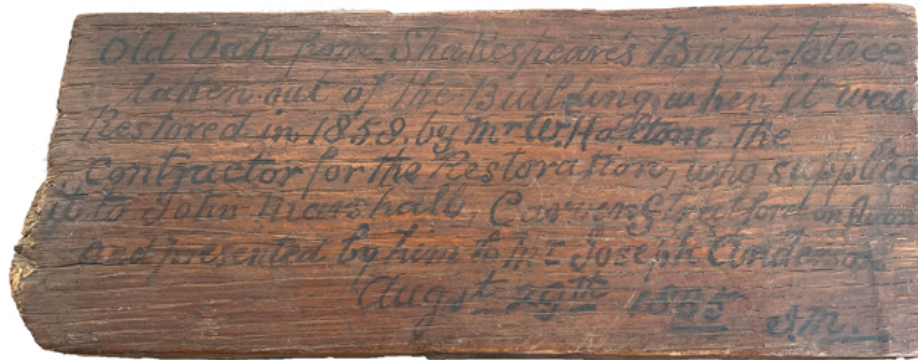 Old Oak from Shakespeare's Birth-place
taken out of the Building, when it was
Restored in 1858, by Mr W. Haltone, the
contractor for the Restoration, who supplied
it to John Marshall, Carver, Stratford on Avon
and presented by him to Mr Joseph Anderson
Augst 29th 1885 J.M.